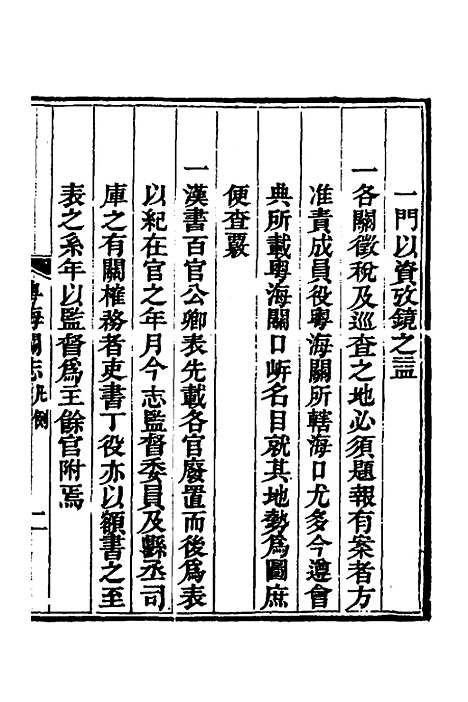 一門以資攷鏡之䀋
一各關徵稅及巡查之地必須題報有案者方
准責成員役粵海關所轄海口尤多今遵會
典所載粵海關口岍名目就其地勢爲圖庶
便查覈
一漢書百官公卿表先載各官廢置而後爲表
以紀在官之年月今志監督委員及縣丞司
庫之有關榷務者吏書丁役亦以額書之至
表之系年以監督爲主餘官附焉
粵海關志凡例
二